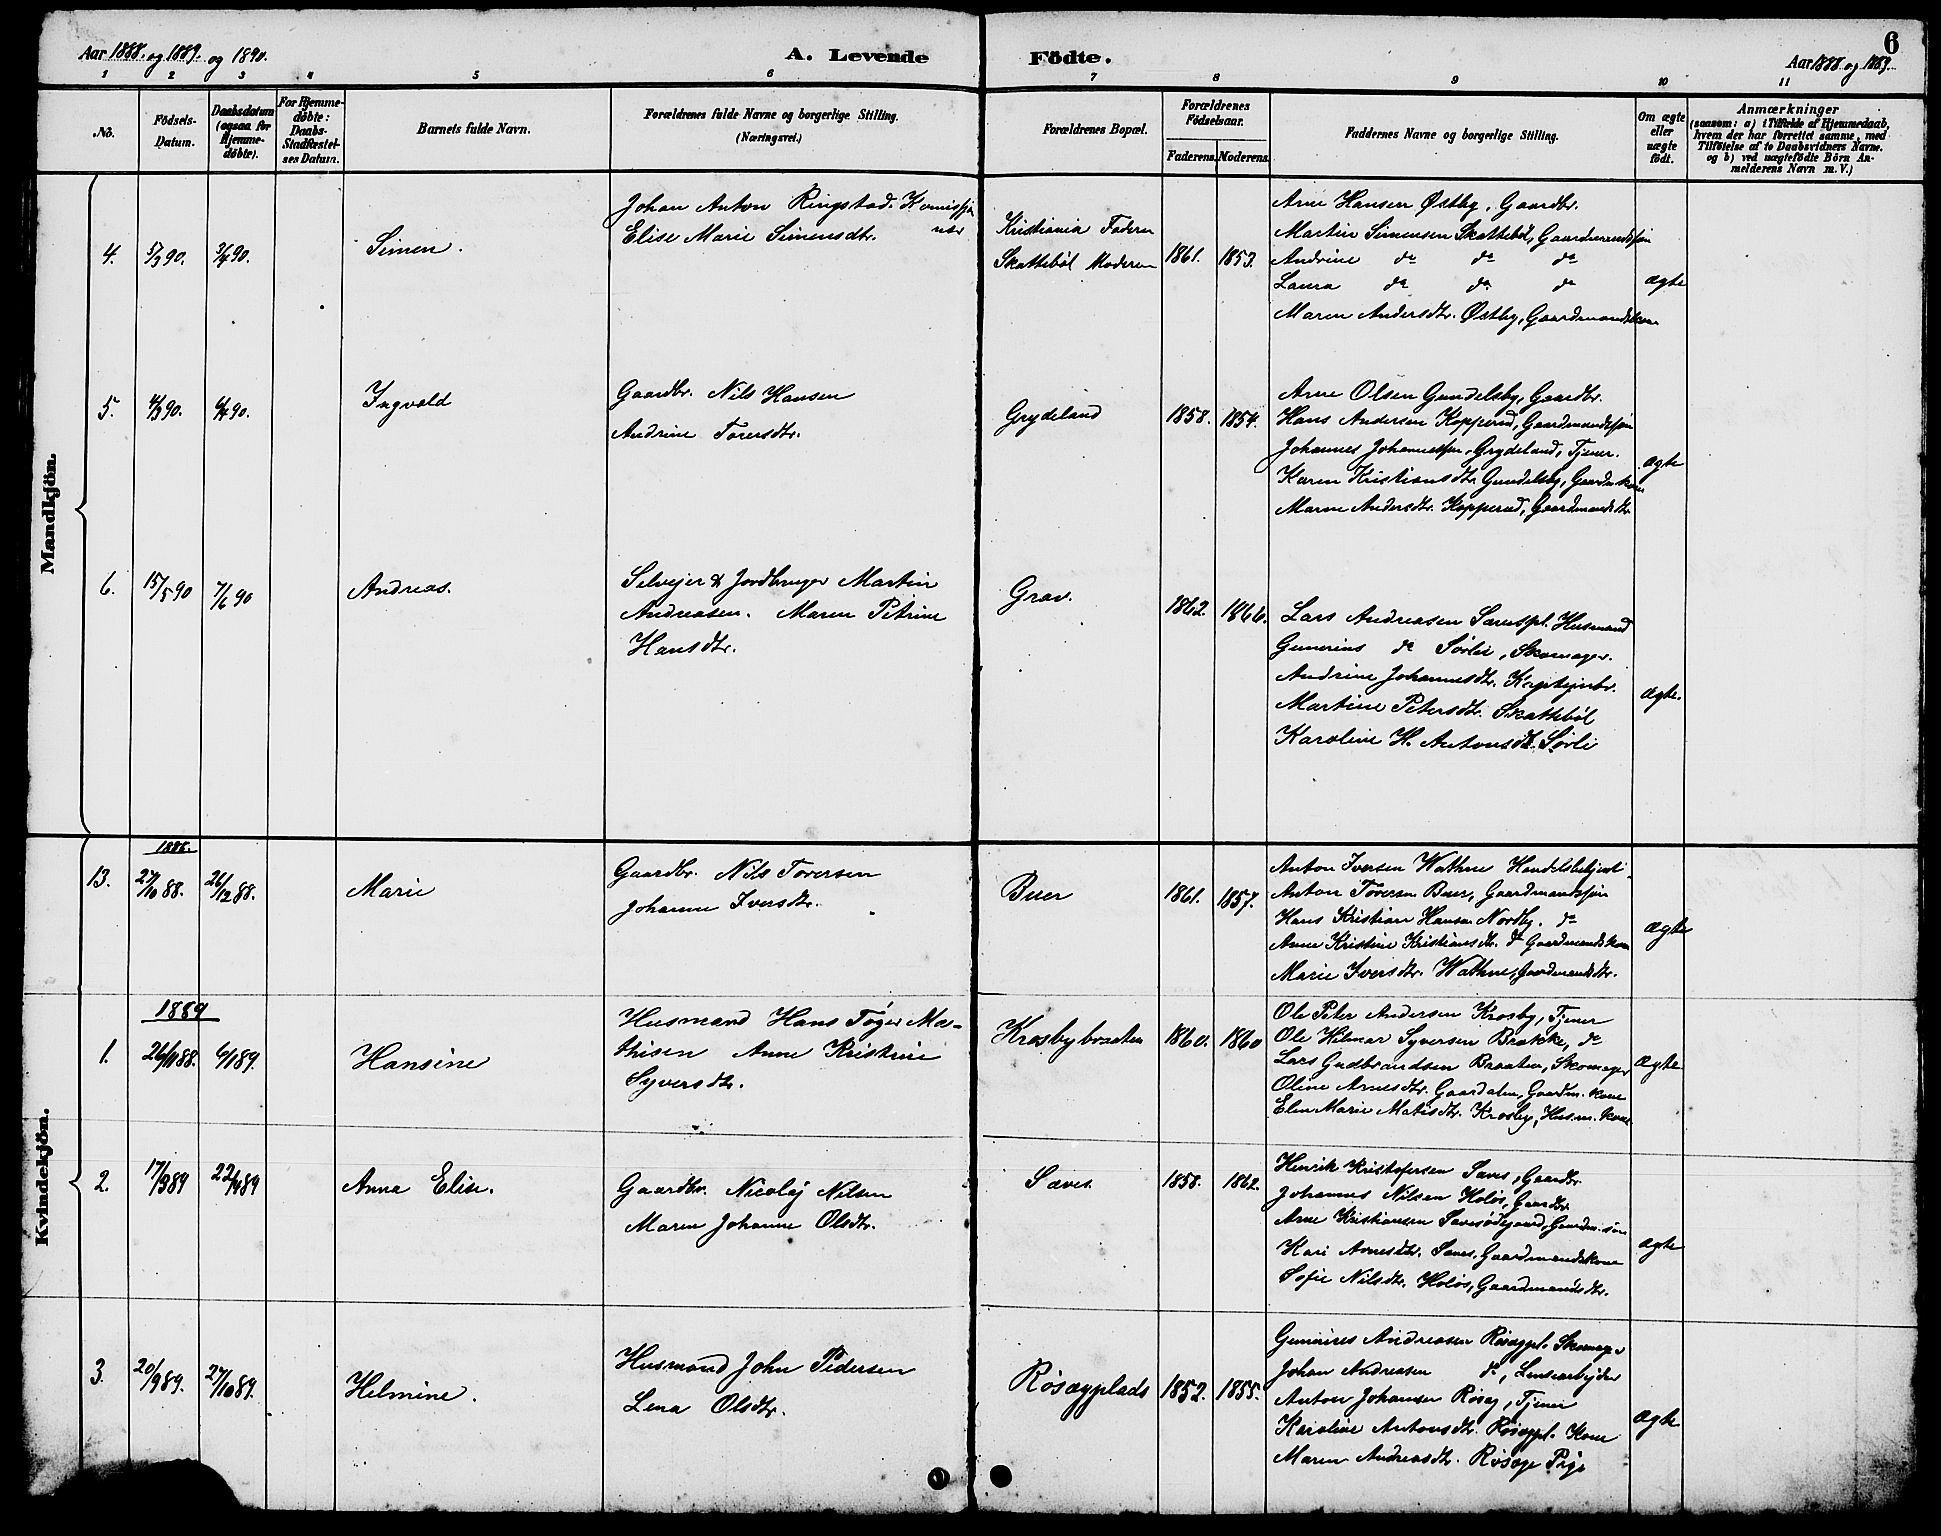 Aar 1888. og 1889. og 1890.
A. Levende Födte.
6
Aar 1888 og 1889.
1 2 3 4 5 6 7 8 9 10 11
No.
Födsels-Datum.
Daabsdatum (ogsaa for Hjemme-döbte).
For Hjemme-döbte: Daabs-Stadfæstel-ses Datum.
Barnets fulde Navn.
Forældrenes fulde Navne og borgerlige Stilling. (Næringsvei.)
Forældrenes Bopæl.
Forældrenes Födselsaar.
Faderens. Moderens.
Faddernes Navne og borgerlige Stilling.
Om ægte eller uægte födt.
Anmærkninger
(saasom: a) i Tilfælde af Hjemmedaab,
hvem der har forrettet samme, med
Tilföielse af to Daabsvidners Navne.
og b) ved uægtefödte Börn An-
melderens Navn m. V.)
Mandkjön.
4. 5/3 90. 3/4 90.
Simen.
Johan Anton Ringstad. Komissjo
nær
Elise Marie Simensdtr.
Kristiania Faderen
Skattebøl Moderen
1861. 1853.
Arne Hansen Østby, Gaardbr.
Martin Simensen Skattebøl, Gaardmandssøn
Andrine do do do
Laura do do do
Maren Andersdtr. Østby, Gaardmandskone
ægte
5. 4/3 90. 6/4 90.
Ingvald
Gaardbr. Nils Hansen
Andrine Torersdtr.
Grydeland
1858. 1854.
Arne Olsen Gundelsby, Gaardbr.
Hans Andersen Kopperud, Gaardmandssøn
Johannes Johannessen, Grydeland, Tjener.
Karen Kristiansdtr. Gundelsby, Gaardm.kone
Maren Andersdtr. Kopperud, Gaardmandsdtr.
ægte
6. 15/5 90 7/6 90
Andreas.
Selvejer & Jordbruger Martin
Andreasen. Maren Petrine
Hansdtr.
Grav.
1862. 1866.
Lars Andreasen Sarutspl. Husmand
Gunerius do Sørlie, Skomager.
Andrine Johannesdtr. Kaptejnbr.
Martine Petersdtr. Skattebøl
Karoline H. Antonsdtr. Sørli
ægte.
Kvindekjön.
1888.
13. 27/10 88. 26/12 88.
Marie
Gaardbr. Nils Torersen
Johanne Iversdtr.
Buer
1861. 1857.
Anton Iversen Wathne Handelsbetjent.
Anton Torersen Buer, Gaardmandssøn
Hans Kristian Hansen Nordby. do
Anne Kristine Kristiansdtr. do Gaardmandskone
Marie Iversdtr. Wathne, Gaardmandsdtr.
ægte
1889
1. 26/11 88. 6/1 89.
Hansine
Husmand Hans Tøger Ma-
thisen Anne Kristine
Syversdtr.
Krosbybraaten
1860. 1860
Ole Peter Andersen Krosby, Tjener
Ole Hilmar Syversen Brække, do
Lars Gudbrandsen Braaten, Skomager
Oline Arnesdtr. Gaardalen, Gaardm. kone
Elen Marie Matisdtr. Krosby, Husm. kone
ægte
2. 17/3 89 22/4 89
Anna Elise.
Gaardbr. Nicolaj Nilsen
Maren Johanne Olsdtr.
Saves.
1858. 1862.
Henrik Kristofersen Saves, Gaardbr.
Johannes Nilsen Holøs, Gaardbr.
Arne Kristiansen Savesødegaard, Gaardm. søn
Kari Arnesdtr. Saves, Gaardmandskone
Sofie Nilsdtr. Holøs, Gaardmandsdtr.
ægte
3. 20/9 89. 27/10 89.
Helmine.
Husmand John Pedersen
Lena Olsdtr.
Røsægplads
1852. 1855.
Gunerius Andreasen Røsægpl. Skomager
Johan Andreasen do, Lensearbejder
Anton Johansen Røsæg, Tjener
Karoline Antonsdtr. Røsægpl. Kone
Maren Andreasdtr. Røsæg Pige
ægte